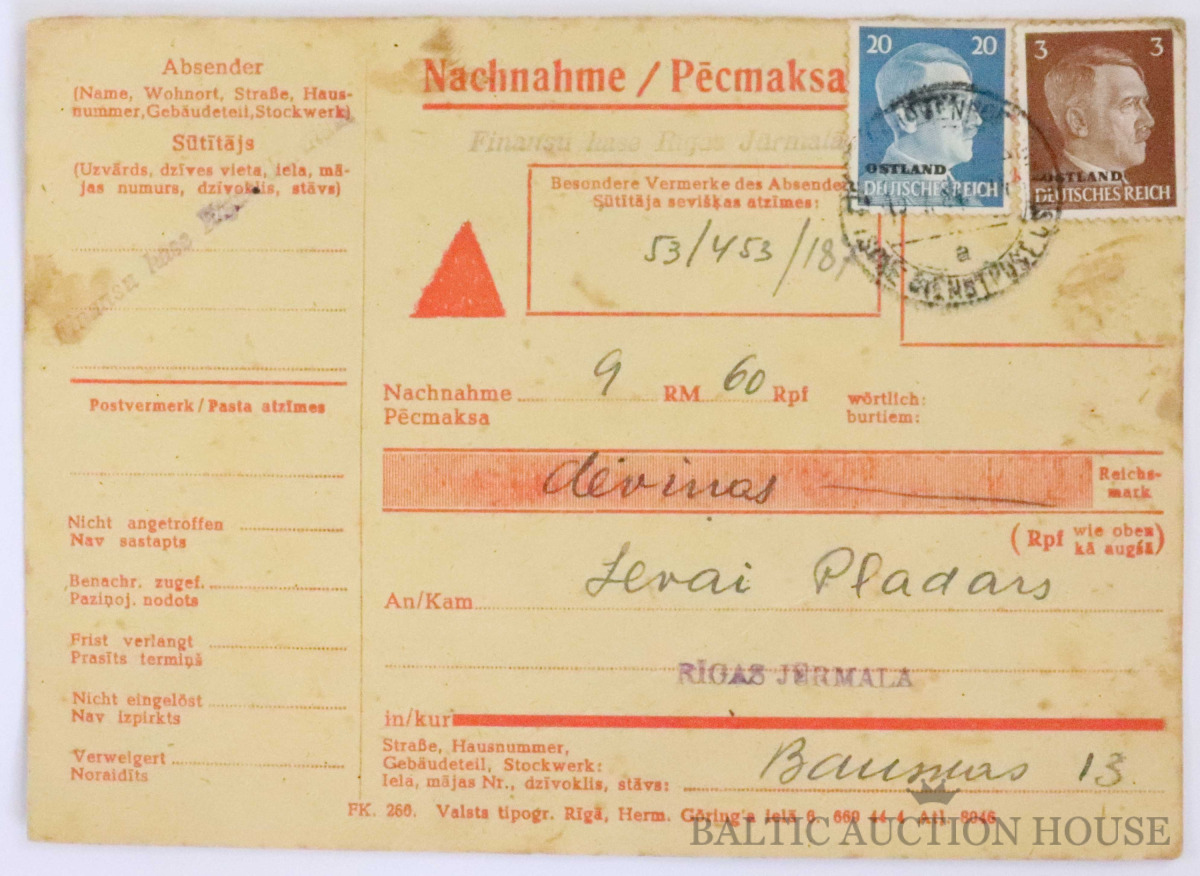 Absender
(Name, Wohnort, Straße, Haus-
nummer, Gebäudeteil, Stockwerk)
Sūtītājs
(Uzvārds, dzīves vieta, iela, mā-
jas numurs, dzīvoklis, stāvs)
Postvermerk / Pasta atzīmes
Nicht angetroffen
Nav sastapts
Benachr. zugef.
Paziņoj. nodots
Frist verlangt
Prasīts termiņš
Nicht eingelöst
Nav izpirkts
Verweigert
Noraidīts
Nachnahme / Pēcmaksa
Finansu kase Rīgas Jūrmalā
Besondere Vermerke des Absenders
Sūtītāja sevišķas atzīmes:
53/453/187
20 20
OSTLAND
DEUTSCHES REICH
3 3
OSTLAND
DEUTSCHES REICH
a
DIENSTPOST
Nachnahme 9 RM 60 Rpf wörtlich:
Pēcmaksa burtiem:
deviņas
Reichs-
mark
(Rpf wie oben
kā augšā)
An/Kam Ievai Pladars
RĪGAS JŪRMALA
in/kur
Straße, Hausnummer,
Gebäudeteil, Stockwerk:
Iela, mājas Nr., dzīvoklis, stāvs: 13.
FK. 266. Valsts tipogr. Rīgā, Herm. Göring'a ielā 6. 660 44 4 Atl. 8046
BALTIC AUCTION HOUSE